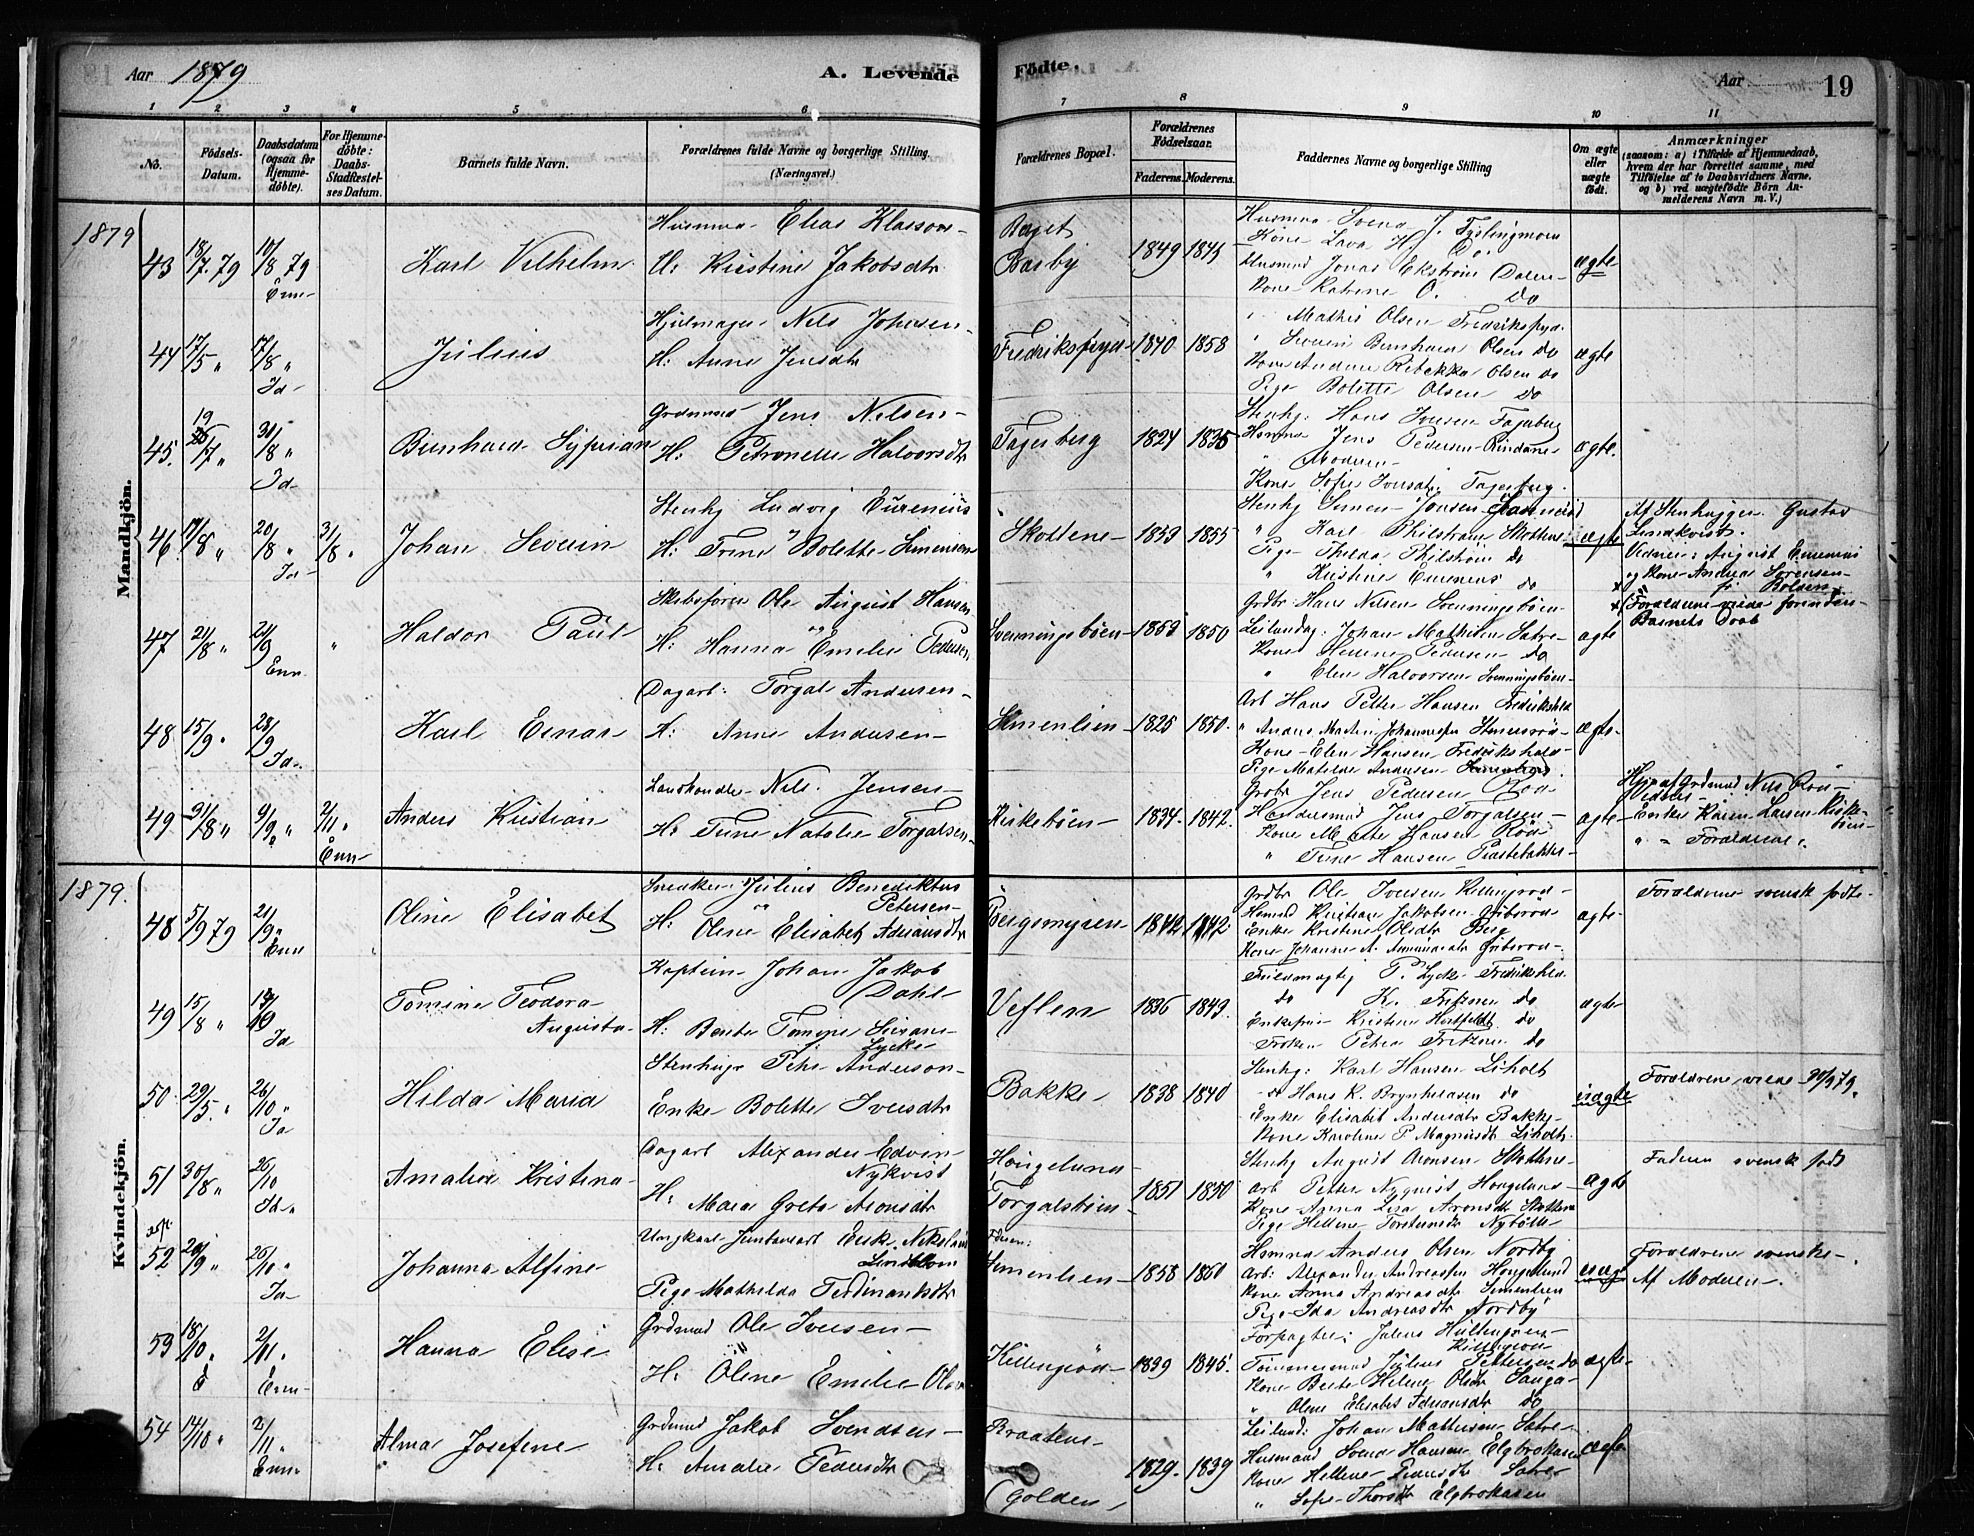 Aar 1879
A. Levende
Födte.
Aar
19
1 2 3 4 5 6 7 8 9 10 11
No.
Födsels-
Datum.
Daabsdatum
(ogsaa for
Hjemme-
döbte).
For Hjemme-
döbte:
Daabs-
Stadfæstel-
ses Datum.
Barnets fulde Navn.
Forældrenes fulde Navne og borgerlige Stilling.
(Næringsvei.)
Forældrenes Bopæl.
Forældrenes
Födselsaar.
Faderens. Moderens.
Faddernes Navne og borgerlige Stilling
Om ægte
eller
uægte
födt.
Anmærkninger
(saasom: a) i Tilfælde af Hjemmedaab,
hvem der har forrettet samme, med
Tilföielse af to Daabsvidners Navne,
og b) ved uægtefödte Börn An-
melderens Navn m. V.)
Mandkjön.
1879
43 18/7 79 10/8 79
Enn-
Karl Vilhelm
Husmna Elias Klasson-
H: Kristine Jakobsdtr
Basby
1849 1845
Husmna Svend J. Tyslingmoen
Kone Lava H. Do
Husmnd Jonas Ekström Dalen
Kone Katrine O. Do
ægte
44 17/5 " 17/8 "
Id-
Julius
Hjulmager Nils Johnsen-
H: Anne Jensdtr
Fredriksfryd 1840 1858
Mathis Olsen Fredriksfryd.
" Severin Bernhard Olsen do
Kone Andrine Rebekka Olsen do
Pige Bolette Olsen do
ægte
45. 19/7 " 31/8 "
Id-
Bernhard Syprian
Grdmnd Jens Nilsen-
H: Petronelle Halvorsdtr
Fagerberg 1824 1835
Stenhg: Hans Iversen Fagerberg
Husmna Jens Pedersen Rindane
" Moderen-
Kone Sofie Iversdtr. Fagerberg.
ægte.
46 17/8 " 20/8 " 31/8 "
Id-
Johan Severin
Stenhg Ludvig Eurenius
H: Trine Bolette Simensen
Skottene- 1853 1855
" Karl Thilström Skottene
Pige Thilda Thilström do
" Kristine Eurenius do
ægte
Af Stenhugger Gustav
Lindkvist.
Vidner: August Eurenius
og Kone Andrea Sörensen-
x Forældrene viede forinden
Barnets Daab
47 21/8 " 21/9 "
Enn.
Haldor Paul
Skibsförer Ole August Hansen
og
H: Hanna Emelie Pedersen
Svenningsböen- 1853 1850
Grdbr. Hans Nilsen Svenningsböen-
Leilændg: Johan Mathisen Sætre-
Kone Hellene Pedersen do
" Elen Halvorsen Svenningsböen-
ægte
48 15/9 " 28/9
Id-
Karl Einar
Dagarb: Torgal Andersen-
H: Anne Andersen-
Simenlien- 1825 1850.
Arb Hans Petter Hansen Fredrikshald
Kone Elen Hansen Fredrikshald-
Pige Matilde Andersen Simenlien.
ægte-
49 31/8 " 9/9 " 2/11 "
Enn-
Anders Kristian
Landhandler Nils Jensen-
H: Trine Natalie Torgalsen-
Kirkeböen- 1834. 1842.
Grdbr Jens Pedersen Röd
Handesmnd Jens Torgalsen-
Kone M Elis Hansen Röd
" Trine Hansen Præstebakke-
ægte-
Hjp af Grdmnd Nils Röd
Vidner-
Enke Karen Larsen Kirke-
böen-
" " Forældrene.
Kvindekjön.
1879.
48 5/9 79 21/9 "
Enn
Oline Elisabet
Snedker Julius Benediktus
Petersen-
H: Olene Elisabet Adriansdtr
Bergsmyren- 1842 1842
Grdbr Ole Iversen Killingröd-
Husmnd Kristian Jakobsen Gribsröd-
Enke Kristine Olsdtr Berg
Kone Johanne A. Gribsröd.
ægte-
Forældrene svensk födte-
49 15/8 "
Id
Tomine Teodora
Augusta-
Kaptein Johan Jakob
Dahl-
H: Bente Tomine
Lycke
Veflen 1836 1849.
Fuldmægtig P. Lycke Fredrikshd
do K. Fritzner do
Enkefru Kristine Hartfeldt do
Fröken Petra Fritzner do
ægte-
50 29/5 " 26/10 "
Id
Hilda Maria
Stenhugr Pehr Anderson-
Enke Bolette Iversdtr
Bakke 1838 1840
Stenhg: Karl Hansen Liholt
do Hans K. Brynhildsen do
Enke Elisabet Andersdtr Bakke-
Kone Karoline P Magnusdtr Liholt.
uægte
Forældrene viede 30/9 79.
51 30/8 " 26/10
Id "
Amalia Kristina-
Dagarb Alexander Edvin
Nykvist
H: Maria Greta Aronsdtr
Haugelund-
Torgalsböen- 1851 1850
Stenhg August Aronsen Skottene-
Arb Petter Nyqvist Haugelund-
Kone Anna Lisa Aronsdtr Skottene
Pige Hellene Torstensdtr Nyböle
ægte
Faderen svensk födt
52 29/9 " 26/10 "
Id-
Johanna Alfine
Ungkarl Jernbanearb Erik Nikolaus
Lindblom
Pige Mathilda Ferdinandsdtr
Simenlien- 1858 1860
Husmnd Anders Olsen Nordby
Arb: Alexander Andreassen Haugelund
Kone Anna Andreasdtr Simenlien
Pige Ida Andreasdtr Nordby
uægte
Forældrene svenske-
Af Moderen-.
53 18/10 " 2/11 "
Enn-
Hanna Elise
Grdmnd Ole Iversen-
H: Oline Emilie Olsdtr
Killingröd- 1839 1845.
Tömmermnd Julius Pettersen do
Kone Berte Helene Olsdtr Sauga-
" Olene Elisabet Adriansdtr do
ægte-
54 14/10 " 2/11 "
Enn-
Alma Josefine
Grdmnd Jakob Svendsen-
H: Amalie Pedersdtr
Braatene-
(Golden) 1829. 1839
Leilænd: Johan Mathisen Sætre-
Husmand Svend Hansen Elgbrokasen
Kone Hellene Pedersdtr Sætre
" Sofie Thorsdtr Elgbrokasen
ægte